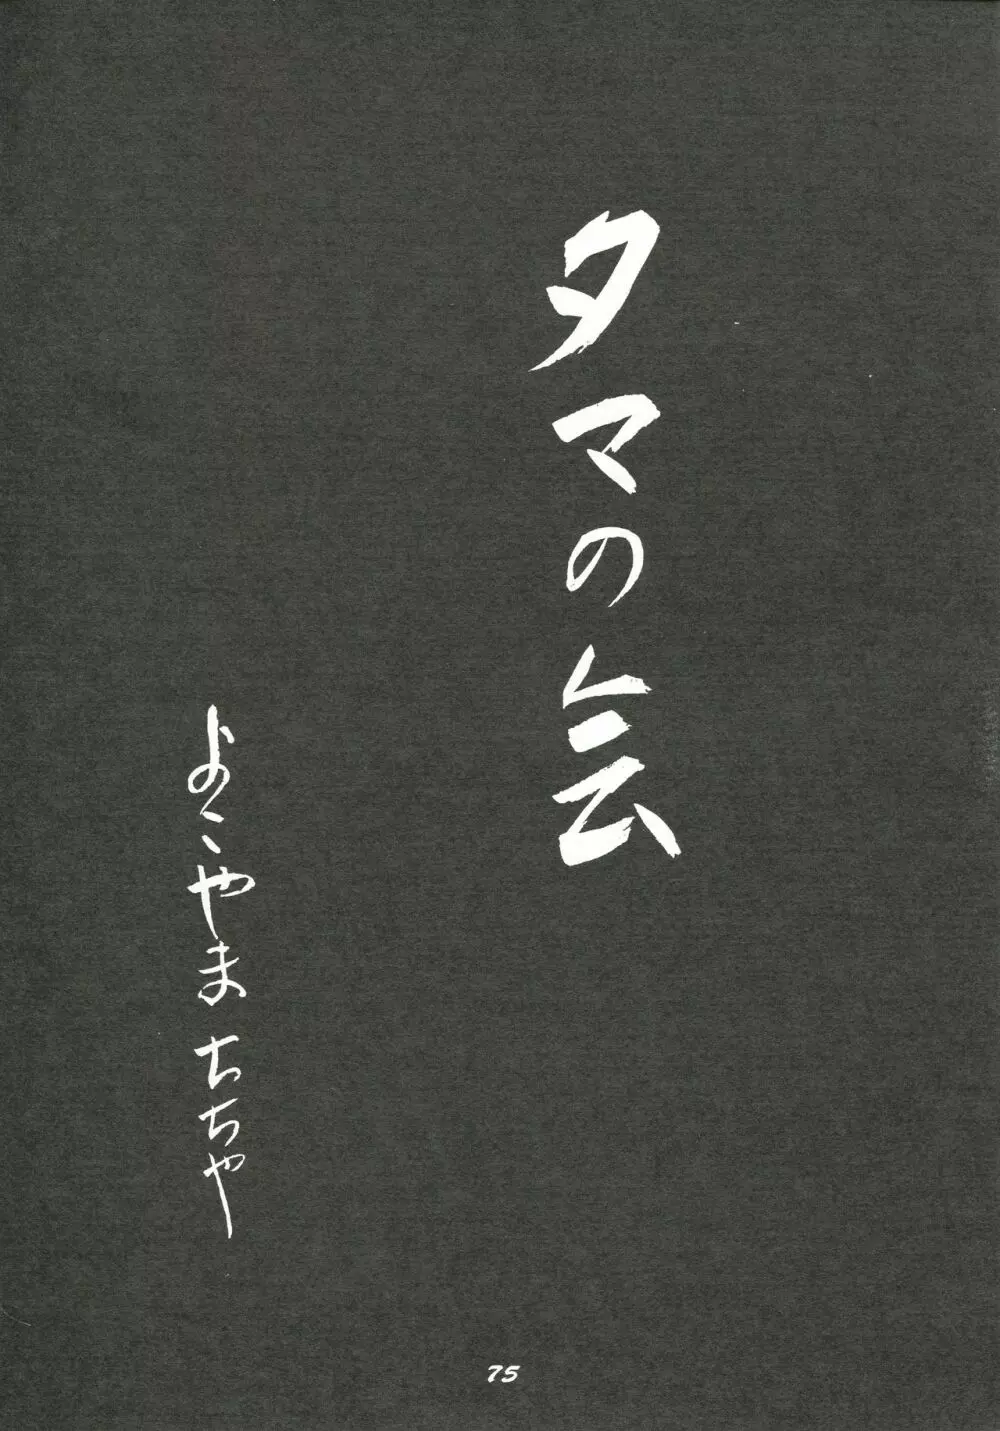 タマの会
よこやまちちゃ
75